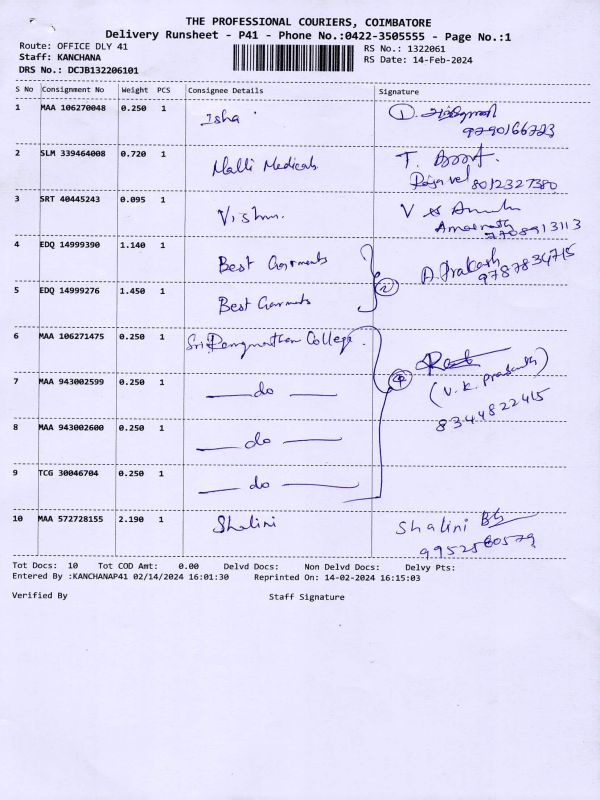 THE PROFESSIONAL COURIERS, COIMBATORE
Delivery Runsheet - P41 - Phone No.:0422-3505555 - Page No.:1
Route: OFFICE DLY 41
RS No.: 1322061
Staff: KANCHANA
RS Date: 14-Feb-2024
DRS No.: DCJB132206101
S No AWB No Weight PCS Consignee Details Signature
1 MAA 106270048 0.250 1 Isha 1
9790166723
2 SLM 339464008 0.720 1 Malli Medicals T.
8012327380
3 SRT 40445243 0.095 1 Vishnu. V
7708913113
4 EDQ 14999390 1.140 1 Best Garments A. Prakash
9787834715
2
5 EDQ 14999276 1.450 1 Best Garments
6 MAA 106271475 0.250 1 Sri Ranganathan College.
4
(V. K. Prasanth)
8344822415
7 MAA 943002599 0.250 1 — do —
8 MAA 943002600 0.250 1 — do —
9 TCG 30046704 0.250 1 — do —
10 MAA 572728155 2.190 1 Shalini Shalini
9952560579
Tot Docs: 10 Tot COD Amt: 0.00 Delvd Docs: Non Delvd Docs: Delvy Pts:
Entered By :KANCHANAP41 02/14/2024 16:01:30 Reprinted On: 14-02-2024 16:15:03
Verified By Staff Signature